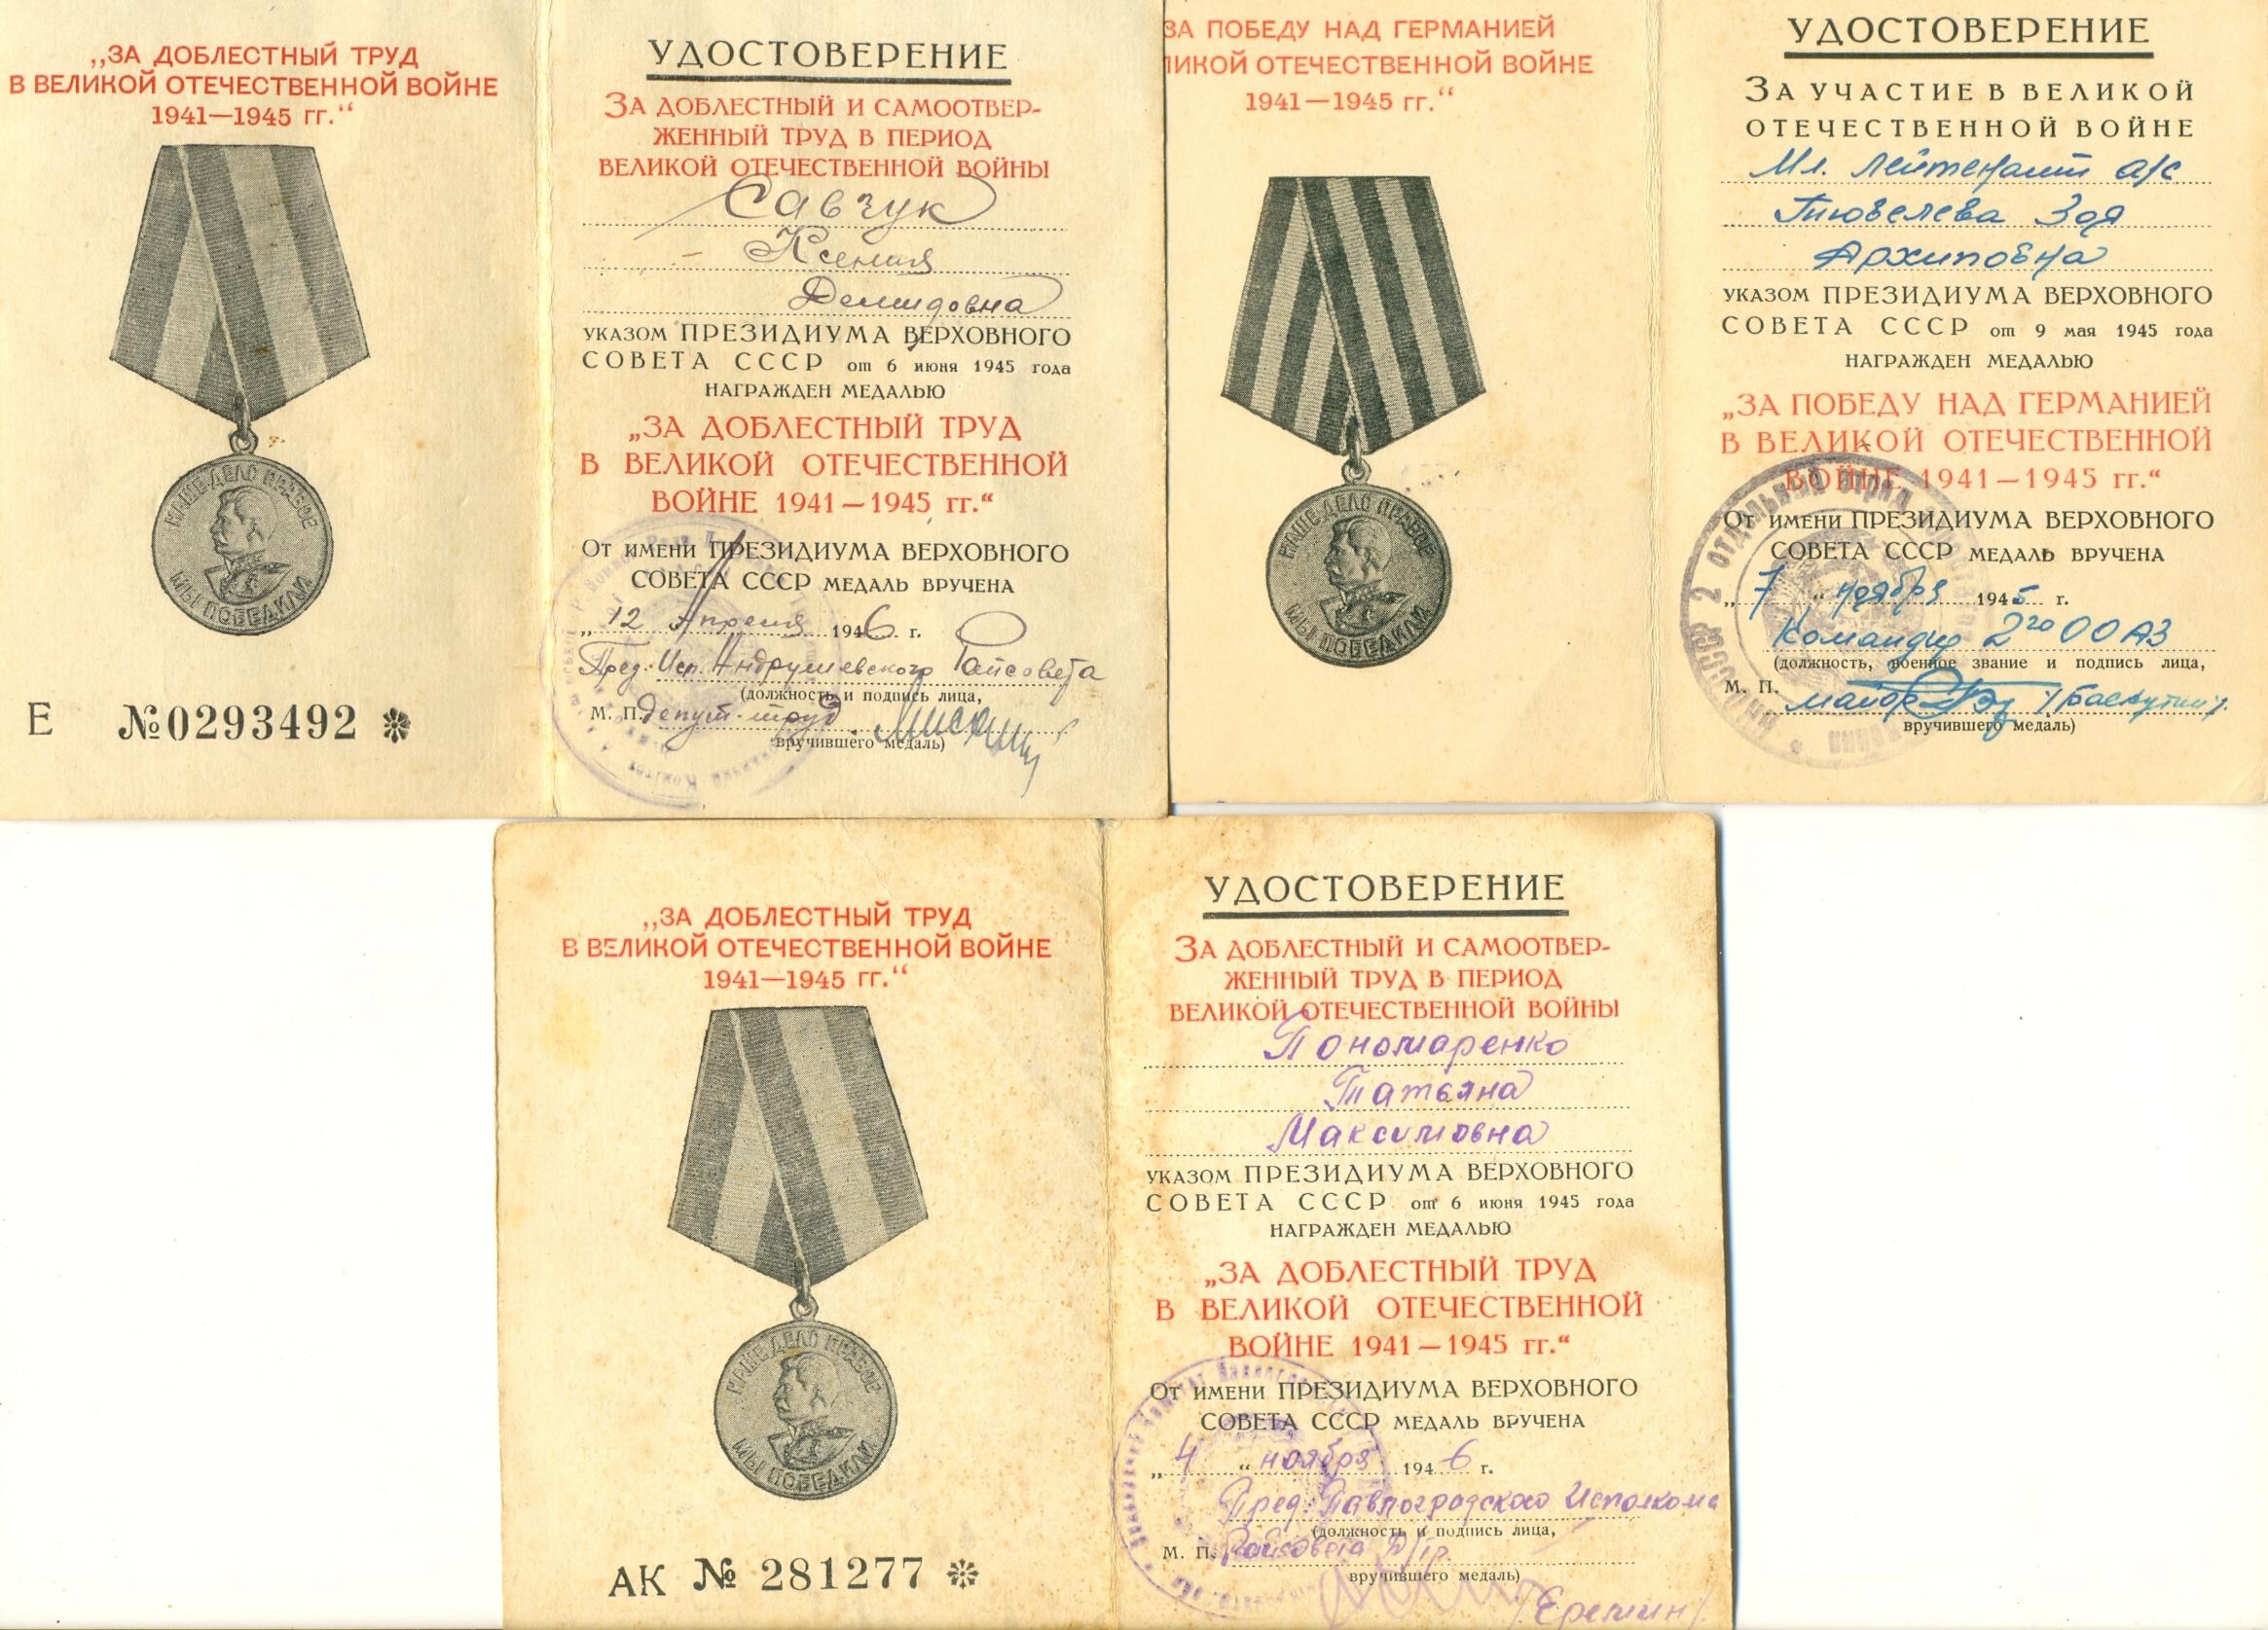 „ЗА ДОБЛЕСТНЫЙ ТРУД
В ВЕЛИКОЙ ОТЕЧЕСТВЕННОЙ ВОЙНЕ
1941—1945 гг.“
НАШЕ ДЕЛО ПРАВОЕ
МЫ ПОБЕДИЛИ
Е №0293492
УДОСТОВЕРЕНИЕ
ЗА ДОБЛЕСТНЫЙ И САМООТВЕР-
ЖЕННЫЙ ТРУД В ПЕРИОД
ВЕЛИКОЙ ОТЕЧЕСТВЕННОЙ ВОЙНЫ
Савчук
Ксения
Демидовна
УКАЗОМ ПРЕЗИДИУМА ВЕРХОВНОГО
СОВЕТА СССР от 6 июня 1945 года
НАГРАЖДЕН МЕДАЛЬЮ
„ЗА ДОБЛЕСТНЫЙ ТРУД
В ВЕЛИКОЙ ОТЕЧЕСТВЕННОЙ
ВОЙНЕ 1941—1945 гг.“
От имени ПРЕЗИДИУМА ВЕРХОВНОГО
СОВЕТА СССР МЕДАЛЬ ВРУЧЕНА
„12 Апреля 1946 г.
Пред. Исп. Андрушевского Райсовета
(должность и подпись лица,
М. П. депут. труд
вручившего медаль)
ЗА ПОБЕДУ НАД ГЕРМАНИЕЙ
ЛИКОЙ ОТЕЧЕСТВЕННОЙ ВОЙНЕ
1941—1945 гг.“
НАШЕ ДЕЛО ПРАВОЕ
МЫ ПОБЕДИЛИ
УДОСТОВЕРЕНИЕ
ЗА УЧАСТИЕ В ВЕЛИКОЙ
ОТЕЧЕСТВЕННОЙ ВОЙНЕ
Мл. Лейтенант а/с
Тювелева Зоя
Архиповна
УКАЗОМ ПРЕЗИДИУМА ВЕРХОВНОГО
СОВЕТА СССР от 9 мая 1945 года
НАГРАЖДЕН МЕДАЛЬЮ
„ЗА ПОБЕДУ НАД ГЕРМАНИЕЙ
В ВЕЛИКОЙ ОТЕЧЕСТВЕННОЙ
ВОЙНЕ 1941—1945 гг.“
От имени ПРЕЗИДИУМА ВЕРХОВНОГО
СОВЕТА СССР МЕДАЛЬ ВРУЧЕНА
„7“ ноября 1945 г.
Командир 2го ООАЗ
(должность, военное звание и подпись лица,
М. П. майор
вручившего медаль)
„ЗА ДОБЛЕСТНЫЙ ТРУД
В ВЕЛИКОЙ ОТЕЧЕСТВЕННОЙ ВОЙНЕ
1941—1945 гг.“
НАШЕ ДЕЛО ПРАВОЕ
МЫ ПОБЕДИЛИ
АК № 281277
УДОСТОВЕРЕНИЕ
ЗА ДОБЛЕСТНЫЙ И САМООТВЕР-
ЖЕННЫЙ ТРУД В ПЕРИОД
ВЕЛИКОЙ ОТЕЧЕСТВЕННОЙ ВОЙНЫ
Пономаренко
Татьяна
Максимовна
УКАЗОМ ПРЕЗИДИУМА ВЕРХОВНОГО
СОВЕТА СССР от 6 июня 1945 года
НАГРАЖДЕН МЕДАЛЬЮ
„ЗА ДОБЛЕСТНЫЙ ТРУД
В ВЕЛИКОЙ ОТЕЧЕСТВЕННОЙ
ВОЙНЕ 1941—1945 гг.“
От имени ПРЕЗИДИУМА ВЕРХОВНОГО
СОВЕТА СССР МЕДАЛЬ ВРУЧЕНА
„4“ ноября 1946 г.
Пред. Павлоградского Исполкома
(должность и подпись лица,
М. П. Райсовета Д/тр.
вручившего медаль)
/Еремин/